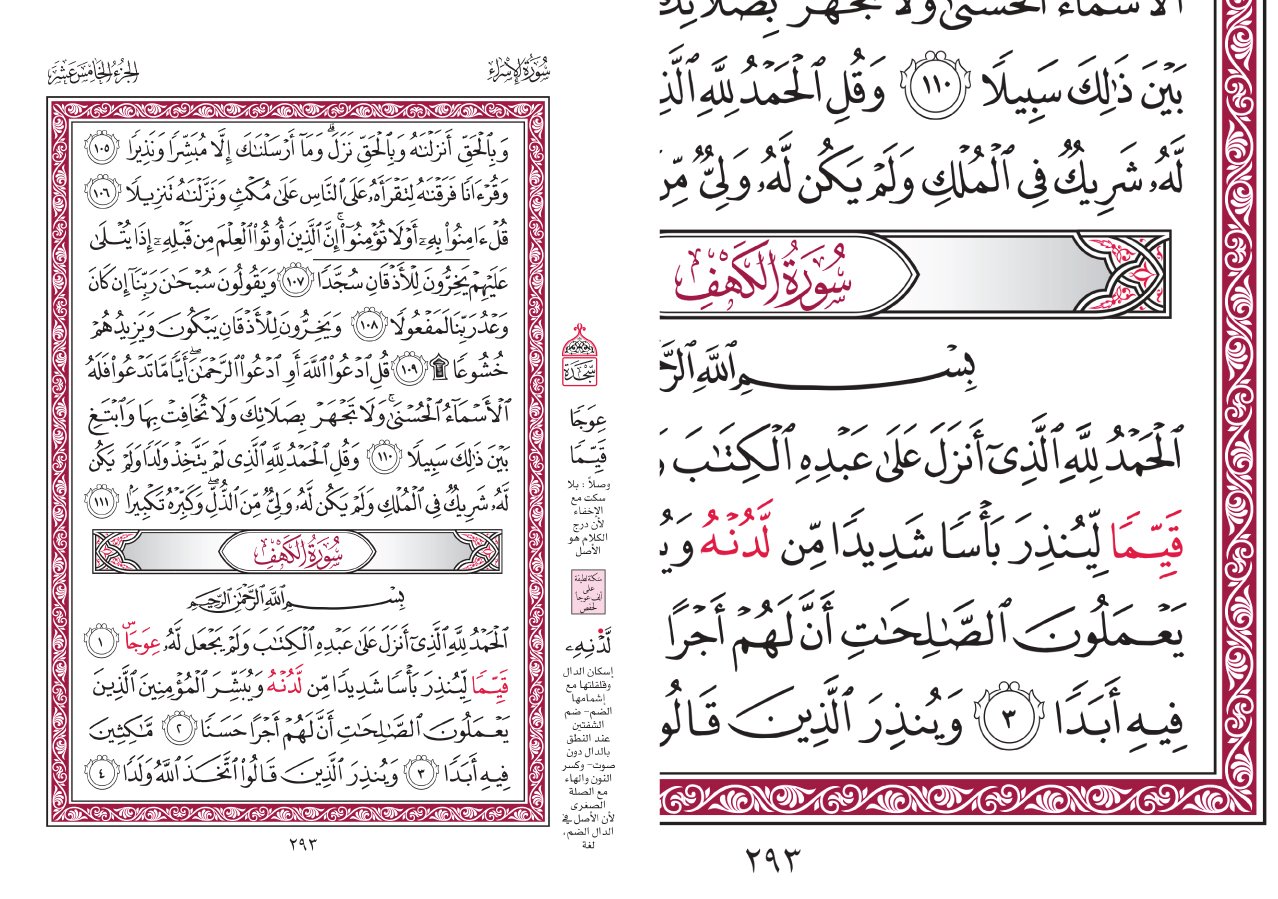 سُورَةُ الإِسْرَاءِ
الجُزْءُ الخَامِسَ عَشَرَ
وَبِٱلْحَقِّ أَنزَلْنَٰهُ وَبِٱلْحَقِّ نَزَلَ ۗ وَمَآ أَرْسَلْنَٰكَ إِلَّا مُبَشِّرًا وَنَذِيرًا ١٠٥
وَقُرْءَانًا فَرَقْنَٰهُ لِتَقْرَأَهُۥ عَلَى ٱلنَّاسِ عَلَىٰ مُكْثٍ وَنَزَّلْنَٰهُ تَنزِيلًا ١٠٦
قُلْ ءَامِنُوا۟ بِهِۦٓ أَوْ لَا تُؤْمِنُوٓا۟ ۚ إِنَّ ٱلَّذِينَ أُوتُوا۟ ٱلْعِلْمَ مِن قَبْلِهِۦٓ إِذَا يُتْلَىٰ
عَلَيْهِمْ يَخِرُّونَ لِلْأَذْقَانِ سُجَّدًا ١٠٧ وَيَقُولُونَ سُبْحَٰنَ رَبِّنَآ إِن كَانَ
وَعْدُ رَبِّنَا لَمَفْعُولًا ١٠٨ وَيَخِرُّونَ لِلْأَذْقَانِ يَبْكُونَ وَيَزِيدُهُمْ
خُشُوعًا ۩ ١٠٩ قُلِ ٱدْعُوا۟ ٱللَّهَ أَوِ ٱدْعُوا۟ ٱلرَّحْمَٰنَ ۖ أَيًّا مَّا تَدْعُوا۟ فَلَهُ
ٱلْأَسْمَآءُ ٱلْحُسْنَىٰ ۚ وَلَا تَجْهَرْ بِصَلَاتِكَ وَلَا تُخَافِتْ بِهَا وَٱبْتَغِ
بَيْنَ ذَٰلِكَ سَبِيلًا ١١٠ وَقُلِ ٱلْحَمْدُ لِلَّهِ ٱلَّذِى لَمْ يَتَّخِذْ وَلَدًا وَلَمْ يَكُن
لَّهُۥ شَرِيكٌ فِى ٱلْمُلْكِ وَلَمْ يَكُن لَّهُۥ وَلِىٌّ مِّنَ ٱلذُّلِّ ۖ وَكَبِّرْهُ تَكْبِيرًۢا ١١١
سُورَةُ الكَهْفِ
بِسْمِ ٱللَّهِ ٱلرَّحْمَٰنِ ٱلرَّحِيمِ
ٱلْحَمْدُ لِلَّهِ ٱلَّذِىٓ أَنزَلَ عَلَىٰ عَبْدِهِ ٱلْكِتَٰبَ وَلَمْ يَجْعَل لَّهُۥ عِوَجَاۜ ١
قَيِّمًا لِّيُنذِرَ بَأْسًا شَدِيدًا مِّن لَّدُنْهُ وَيُبَشِّرَ ٱلْمُؤْمِنِينَ ٱلَّذِينَ
يَعْمَلُونَ ٱلصَّٰلِحَٰتِ أَنَّ لَهُمْ أَجْرًا حَسَنًا ٢ مَّٰكِثِينَ
فِيهِ أَبَدًا ٣ وَيُنذِرَ ٱلَّذِينَ قَالُوا۟ ٱتَّخَذَ ٱللَّهُ وَلَدًا ٤
٢٩٣
سَجْدَة
عِوَجًا
قَيِّمًا
وصلاً : بلا
سكت مع
الإخفاء
لأن درج
الكلام هو
الأصل
سكتة لطيفة
على
ألف عوجا
لحفص
لَّدْنِهِۦ
إسكان الدال
وقلقلتها مع
إشمامها
الضم- ضم
الشفتين
عند النطق
بالدال دون
صوت- وكسر
النون والهاء
مع الصلة
الصغرى
لأن الأصل في
الدال الضم،
لغة
ٱلْأَسْمَآءُ ٱلْحُسْنَىٰ وَلَا تَجْهَرْ بِصَلَاتِكَ
بَيْنَ ذَٰلِكَ سَبِيلًا ١١٠ وَقُلِ ٱلْحَمْدُ لِلَّهِ ٱلَّذِ
لَّهُۥ شَرِيكٌ فِى ٱلْمُلْكِ وَلَمْ يَكُن لَّهُۥ وَلِىٌّ مِّنَ
سُورَةُ الكَهْفِ
بِسْمِ ٱللَّهِ ٱلرَّحْ
ٱلْحَمْدُ لِلَّهِ ٱلَّذِىٓ أَنزَلَ عَلَىٰ عَبْدِهِ ٱلْكِتَٰبَ وَ
قَيِّمًا لِّيُنذِرَ بَأْسًا شَدِيدًا مِّن لَّدُنْهُ وَيُ
يَعْمَلُونَ ٱلصَّٰلِحَٰتِ أَنَّ لَهُمْ أَجْرًا
فِيهِ أَبَدًا ٣ وَيُنذِرَ ٱلَّذِينَ قَالُو
٢٩٣